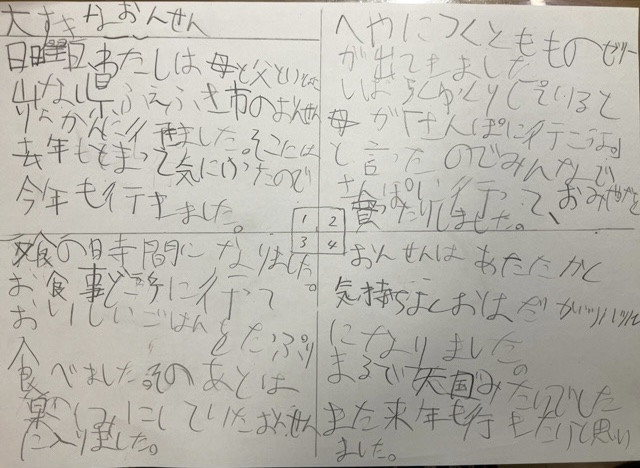 大すきなおんせん
日曜日わたしは母と父といとこと
山なし県ふえふき市のおんせん
りょかんに行きました。そこには
去年もとまって気にいったので
今年も行きました。
へやにつくともものゼリー
が出てきました
しばらくゆっくりしていると
母が「さんぽに行こうよ。」
と言ったのでみんなで
さんぽに行って、おみやげを
買ったりしました。
1 2
3 4
夕食の時間になりました。
お食事どころに行って
おいしいごはんを たっぷり
食べました。そのあとは
楽しみにしていたおんせん
に入りました。
おんせんはあたたかく
気持ちよくおはだがツルツル
になりました。
まるで天国みたいでした
また来年も行きたいと思い
ました。